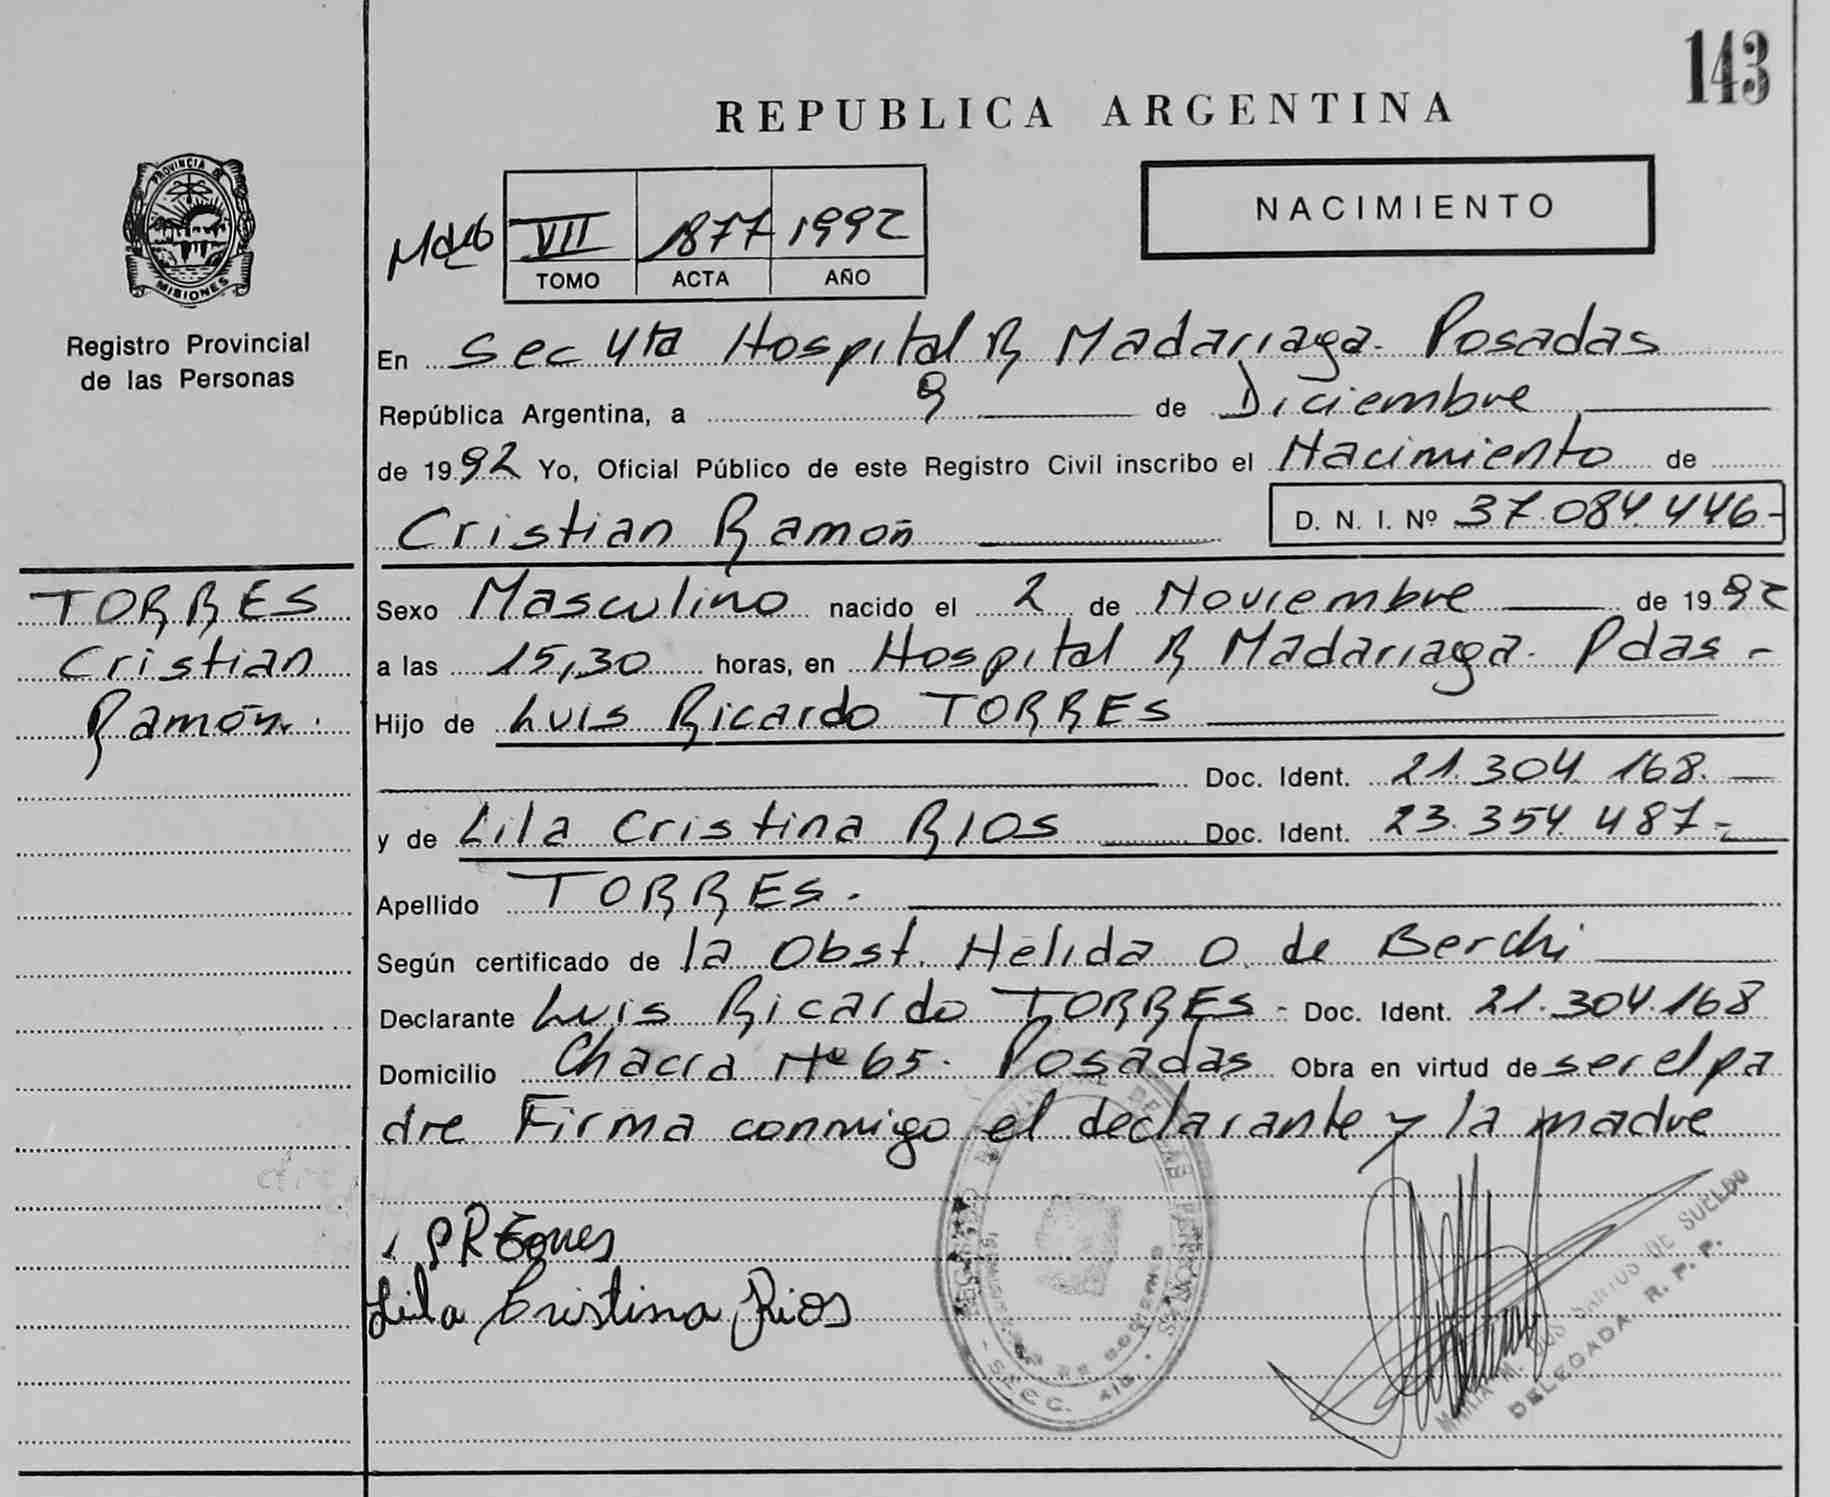 143
REPUBLICA ARGENTINA
PROVINCIA DE
MISIONES
Registro Provincial
de las Personas
VII 1877 1992
TOMO ACTA AÑO
NACIMIENTO
En Sec 4ta Hospital R Madariaga. Posadas
República Argentina, a 9 de Diciembre
de 1992 Yo, Oficial Público de este Registro Civil inscribo el Nacimiento de
Cristian Ramón D. N. I. Nº 37.084.446-
TORRES
Cristian
Ramón.
Sexo Masculino nacido el 2 de Noviembre de 1992
a las 15,30 horas, en Hospital R Madariaga. Pdas -
Hijo de Luis Ricardo TORRES
Doc. Ident. 21.304 168.
y de Lila Cristina RIOS Doc. Ident. 23.354 487-
Apellido TORRES.
Según certificado de la Obst. Helida O. de Berchi
Declarante Luis Ricardo TORRES - Doc. Ident. 21.304.168
Domicilio Chacra Nº 65. Posadas Obra en virtud de ser el pa
dre Firma conmigo el declarante y la madre
Lila Cristina Rios
MARIA M. DOS SANTOS DE SUELDO
DELEGADA R. P. P.
SECC. 4ta.